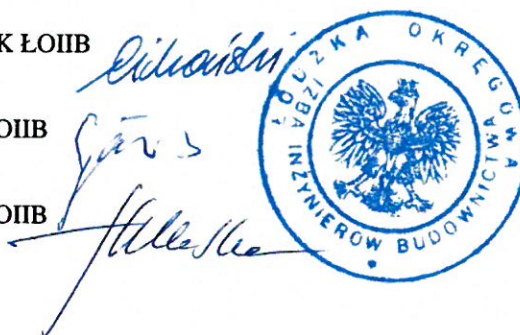 K ŁOIIB
OIIB
OIIB
ŁÓDZKA OKRĘGOWA
IZBA INŻYNIERÓW BUDOWNICTWA